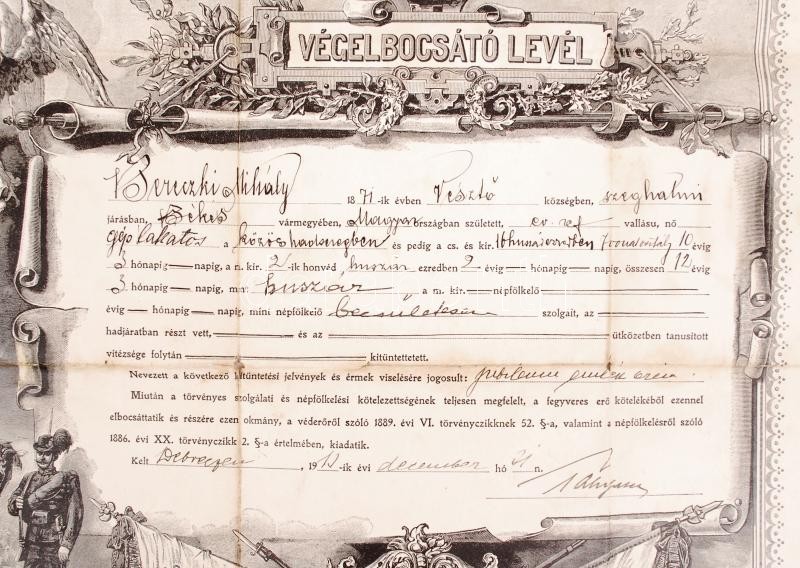 VÉGELBOCSÁTÓ LEVÉL
Bereczki Mihály 1871-ik évben Vésztő községben, szeghalmi
járásban, Békés vármegyében, Magyarországban született, ev. ref vallásu, nő
géplakatos a közös hadseregben és pedig a cs. és kir. 16 huszárezredben 10 évig
3 hónapig — napig, a m. kir. 2-ik honvéd huszár ezredben 2 évig — hónapig — napig, összesen 12 évig
3 hónapig — napig, mint huszár a m. kir. — népfölkelő
évig — hónapig — napig, mint népfölkelő becsületesen szolgált, az
hadjáratban részt vett, és az ütközetben tanusított
vitézsége folytán kitüntettetett.
Nevezett a következő kitüntetési jelvények és érmek viselésére jogosult: jubileumi emlék érem
Miután a törvényes szolgálati és népfölkelési kötelezettségének teljesen megfelelt, a fegyveres erő kötelékéből ezennel
elbocsáttatik és részére ezen okmány, a véderőről szóló 1889. évi VI. törvényczikknek 52. §-a, valamint a népfölkelésről szóló
1886. évi XX. törvényczikk 2. §-a értelmében, kiadatik.
Kelt Debreczen, 19 -ik évi december hó 31 n.